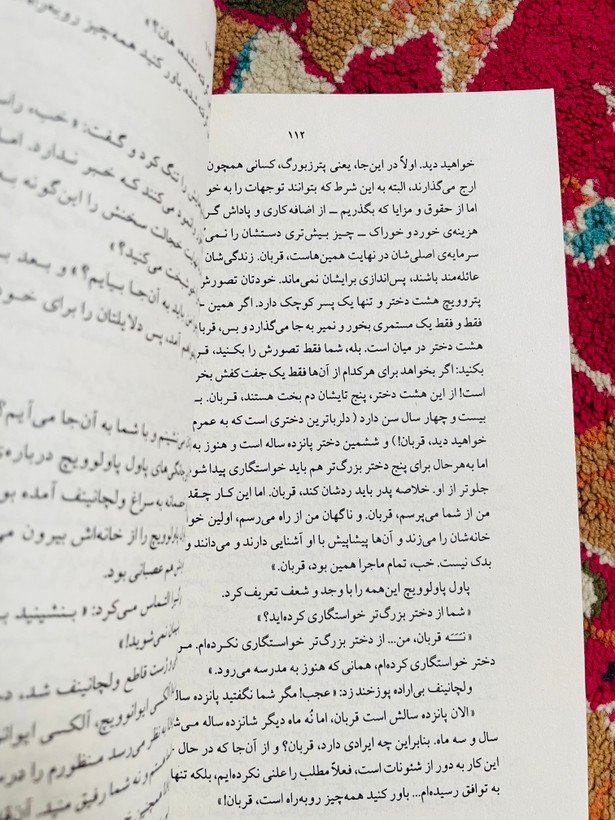 ۱۱۲
خواهید دید. اولاً در این‌جا، یعنی پترزبورگ، کسانی همچون
ارج می‌گذارند، البته به این شرط که بتوانند توجهات را به خو
اما از حقوق و مزایا که بگذریم ــ از اضافه‌کاری و پاداش گر
هزینه‌ی خورد و خوراک ــ چیز بیش‌تری دستشان را نمی‌
سرمایه‌ی اصلی‌شان در نهایت همین‌هاست، قربان. زندگی‌شان
عائله‌مند باشند، پس‌اندازی برایشان نمی‌ماند. خودتان تصورش
پتروویچ هشت دختر و تنها یک پسر کوچک دارد. اگر همین
فقط و فقط یک مستمری بخور و نمیر به جا می‌گذارد و بس، قربا
هشت دختر در میان است. بله، شما فقط تصورش را بکنید، قر
بکنید: اگر بخواهد برای هرکدام از آن‌ها فقط یک جفت کفش بخر
است! از این هشت دختر، پنج تایشان دم بخت هستند، قربان.
بیست و چهار سال سن دارد (دلرباترین دختری است که به عمرم
خواهید دید، قربان!) و ششمین دختر پانزده ساله است و هنوز به
اما به‌هرحال برای پنج دختر بزرگ‌تر هم باید خواستگاری پیدا شو
جلوتر از او. خلاصه پدر باید ردشان کند، قربان. اما این کار چقد
من از شما می‌پرسم، قربان. و ناگهان من از راه می‌رسم، اولین خوا
خانه‌شان را می‌زند و آن‌ها پیشاپیش با او آشنایی دارند و می‌دانند و
بدک نیست. خب، تمام ماجرا همین بود، قربان.»
پاول پاولوویچ این‌همه را با وجد و شعف تعریف کرد.
«شما از دختر بزرگ‌تر خواستگاری کرده‌اید؟»
«نَـَـَـه قربان، من... از دختر بزرگ‌تر خواستگاری نکرده‌ام.
دختر خواستگاری کرده‌ام، همانی که هنوز به مدرسه می‌رود.»
ولچانینف بی‌اراده پوزخند زد: «عجب! مگر شما نگفتید پانزده ساله
«الان پانزده سالش است قربان، اما نُه ماه دیگر شانزده ساله می‌ش
سال و سه ماه. بنابراین چه ایرادی دارد، قربان؟ و از آن‌جا که در حال
این کار به دور از شئونات است، فعلاً مطلب را علنی نکرده‌ایم، بلکه تنها
به توافق رسیده‌ام... باور کنید همه‌چیز روبه‌راه است، قربان!»
شده، باور کنید همه‌چیز روبه‌راه
را تنگ کرد و گفت: «خب، راس
می‌کنند که خبر ندارد. اما
خجالت سخنش را این‌گونه به
می‌کنید؟»
باید به آن‌جا بیایم؟» و بعد
آمد، پس دلایلتان را برای خود
و با شما به آن‌جا می‌آیم؟
پاول پاولوویچ درباره‌ی
به سراغ ولچانینف آمده بو
پاولوویچ را از خانه‌اش بیرون
هم عصبانی بود.
التماس می‌کرد: «بنشینید
نمی‌شوید!»
ژست قاطع ولچانینف شده
ایوانوویچ، آلکسی ایوانو
به نظر می‌رسد منظورم را
و نه شما رفیق منید.